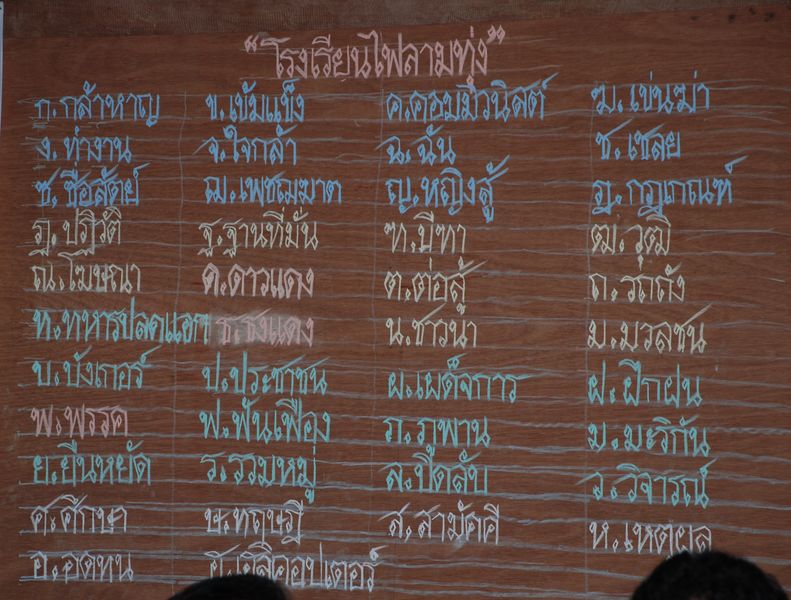 “โรงเรียนไฟลามทุ่ง”
ก.กล้าหาญ ข.เข้มแข็ง ค.คอมมิวนิสต์ ฆ.เข่นฆ่า
ง.ทำงาน จ.ใจกล้า ฉ.ฉัน ช.เชลย
ซ.ซื่อสัตย์ ฌ.เพชฌฆาต ญ.หญิงสู้ ฎ.กฎเกณฑ์
ฏ.ปฏิวัติ ฐ.ฐานที่มั่น ฑ.บีฑา ฒ.วุฒิ
ณ.โฆษณา ด.ดาวแดง ต.ต่อสู้ ถ.รถถัง
ท.ทหารปลดแอกฯ ธ.ธงแดง น.ชาวนา ม.มวลชน
บ.บังเกอร์ ป.ประชาชน ผ.เผด็จการ ฝ.ฝึกฝน
พ.พรรค ฟ.ฟันเฟือง ภ.ภูพาน ม.มะริกัน
ย.ยืนหยัด ร.รวมหมู่ ล.ปิดลับ ว.วิจารณ์
ศ.ศึกษา ษ.ทฤษฎี ส.สามัคคี ห.เหตุผล
อ.อดทน ฮ.เฮลิคอปเตอร์